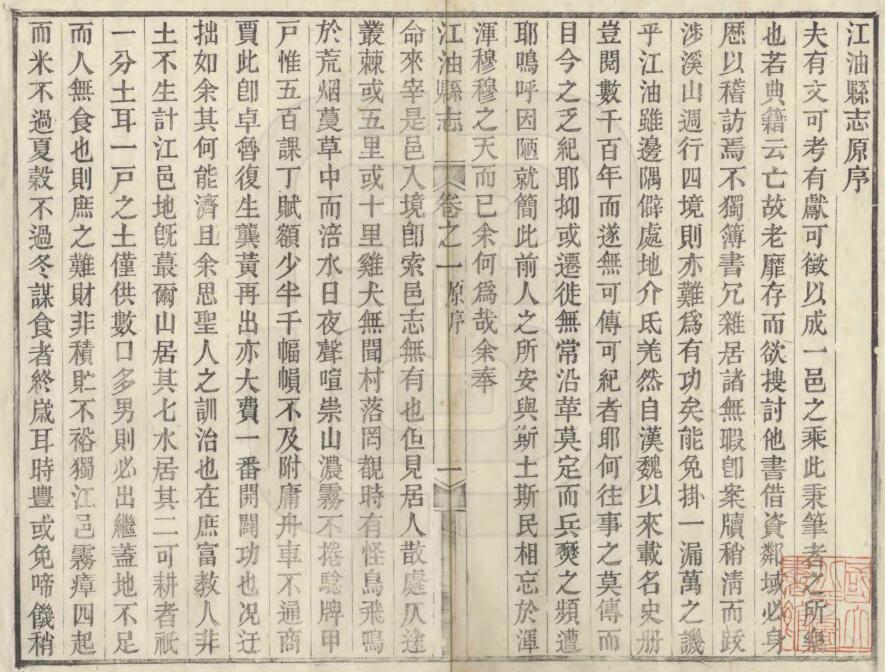 江油縣志原序
夫有文可考有獻可徵以成一邑之乘此秉筆者之所樂
也若典籍云亡故老靡存而欲搜討他書借資鄰域必身
歷以稽訪焉不獨簿書冗雜居諸無暇卽案牘稍淸而跋
涉溪山週行四境則亦難爲有功矣能免掛一漏萬之譏
乎江油雖邊隅僻處地介氐羌然自漢魏以來載名史册
豈閱數千百年而遂無可傳可紀者耶何往事之莫傳而
目今之乏紀耶抑或遷徙無常沿革莫定而兵燹之頻遭
耶嗚呼因陋就簡此前人之所安與斯土斯民相忘於渾
渾穆穆之天而已余何爲哉余奉
江油縣志 卷之一 原序 一
命來宰是邑入境卽索邑志無有也但見居人散處仄途
叢棘或五里或十里雞犬無聞村落罔覩時有怪鳥飛鳴
於荒烟蔓草中而涪水日夜聲喧崇山濃霧不捲騐牌甲
戸惟五百課丁賦額少半千幅幀不及附庸舟車不通商
賈此卽卓魯復生龔黃再出亦大費一番開闢功也况迂
拙如余其何能濟且余思聖人之訓治也在庶富敎人非
土不生計江邑地旣蕞爾山居其七水居其二可耕者祇
一分土耳一戸之土僅供數口多男則必出繼蓋地不足
而人無食也則庶之難財非積貯不裕獨江邑霧瘴四起
而米不過夏穀不過冬謀食者終歲耳時豐或免啼饑稍